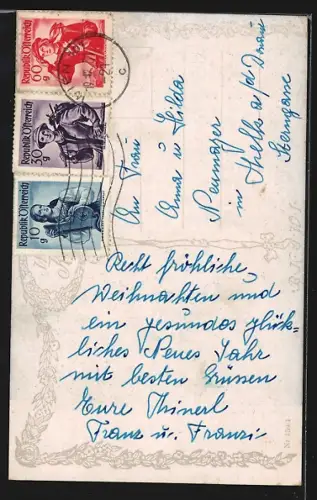 Republik Österreich
60
g
Republik Österreich
30
g
Republik Österreich
10
g
An Frau
Anna u Hilda
Neumayer
in Melk a/d Donau
Sterngasse
Recht fröhliche
Weihnachten und
ein gesundes glück-
liches Neues Jahr
mit besten Grüssen
Eure
Franz u. Franzi